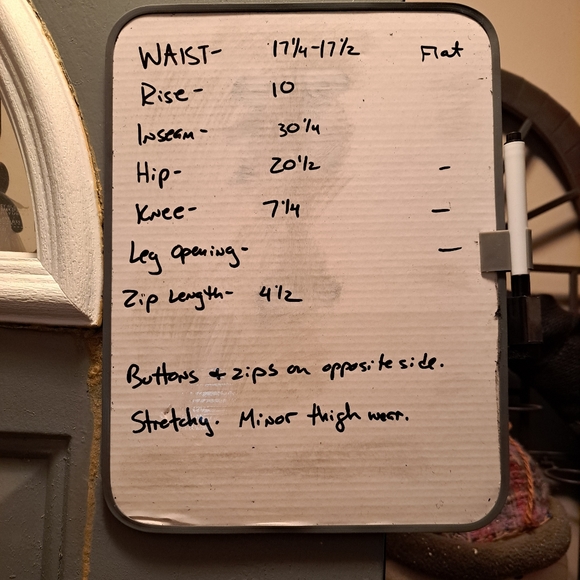 WAIST- 17 1/4-17 1/2 Flat
Rise- 10
Inseam- 30 1/4
Hip- 20 1/2 -
Knee- 7 1/4 -
Leg Opening- -
Zip Length- 4 1/2
Buttons + zips on opposite side.
Stretchy. Minor thigh wear.